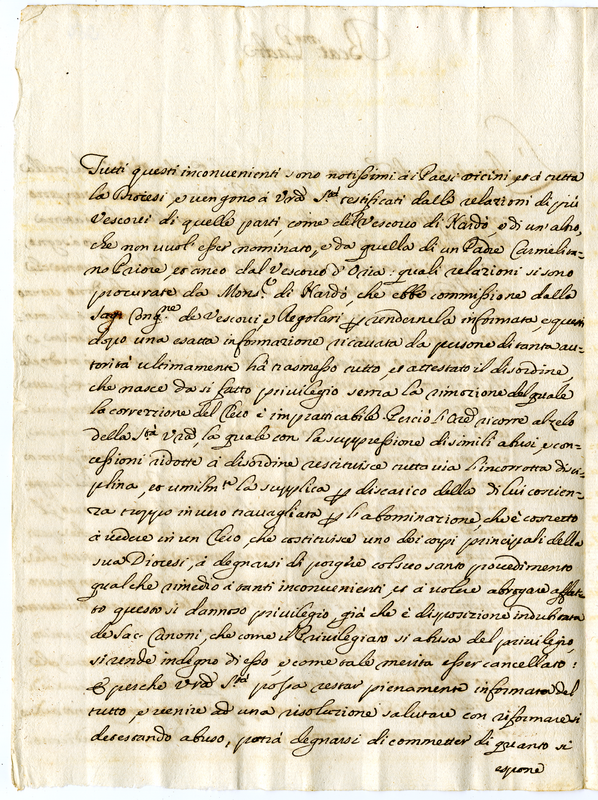 Tutti questi inconvenienti sono notissimi ai Paesi vicini et a tutta
la Diocesi, e vengono à Vrà Stà testificati dalle relazioni di più
Vescovi di quelle parti, come del Vescovo di Nardò, e di un'altro,
che non vuol esser nominato, e da quella di un Padre Carmelita-
no Priore, et anco dal Vescovo d'Oria: quali relazioni si sono
procurate da Monsr di Nardò, che ebbe commissione dalla
Sagr Congne de Vescovi, e Regolari per rendernela informata, e questi
dopo una esatta informazione ricavata da persone di tanta au-
torità ultimamente hà trasmesso tutto, et attestato il disordine
che nasce da si fatto privilegio senza la rimozione del quale
la correzzione del Clero è impratticabile Perciò l'Ore ricorre al zelo
della Stà Vrà, la quale con la suppressione di simili abusi, e con-
cessioni ridotte à disordine restituisce tutta via l'incorrotta disci-
plina, et umilmte la supplica per discarico della di lui coscien-
za troppo in vero travagliata per l'abominazione che è costretto
à vedere in un Clero, che costituisce uno dei corpi principali della
sua Diocesi, à degnarsi di porgere col suo santo procedimento
qualche rimedio à tanti inconvenienti, et à volere abrogare affat-
to questo si dannoso privilegio, già che è disposizione indubitata
de Sac. Canoni, che come il Privilegiato si abusa del privilegio,
si rende indegno di esso, e come tale merita esser cancellato:
E perche Vrà Stà possa restar pienamente informata del
tutto, e venire ad una risoluzione salutare con riformare si
detestando abuso, potrà degnarsi di commetter di quanto si
espone